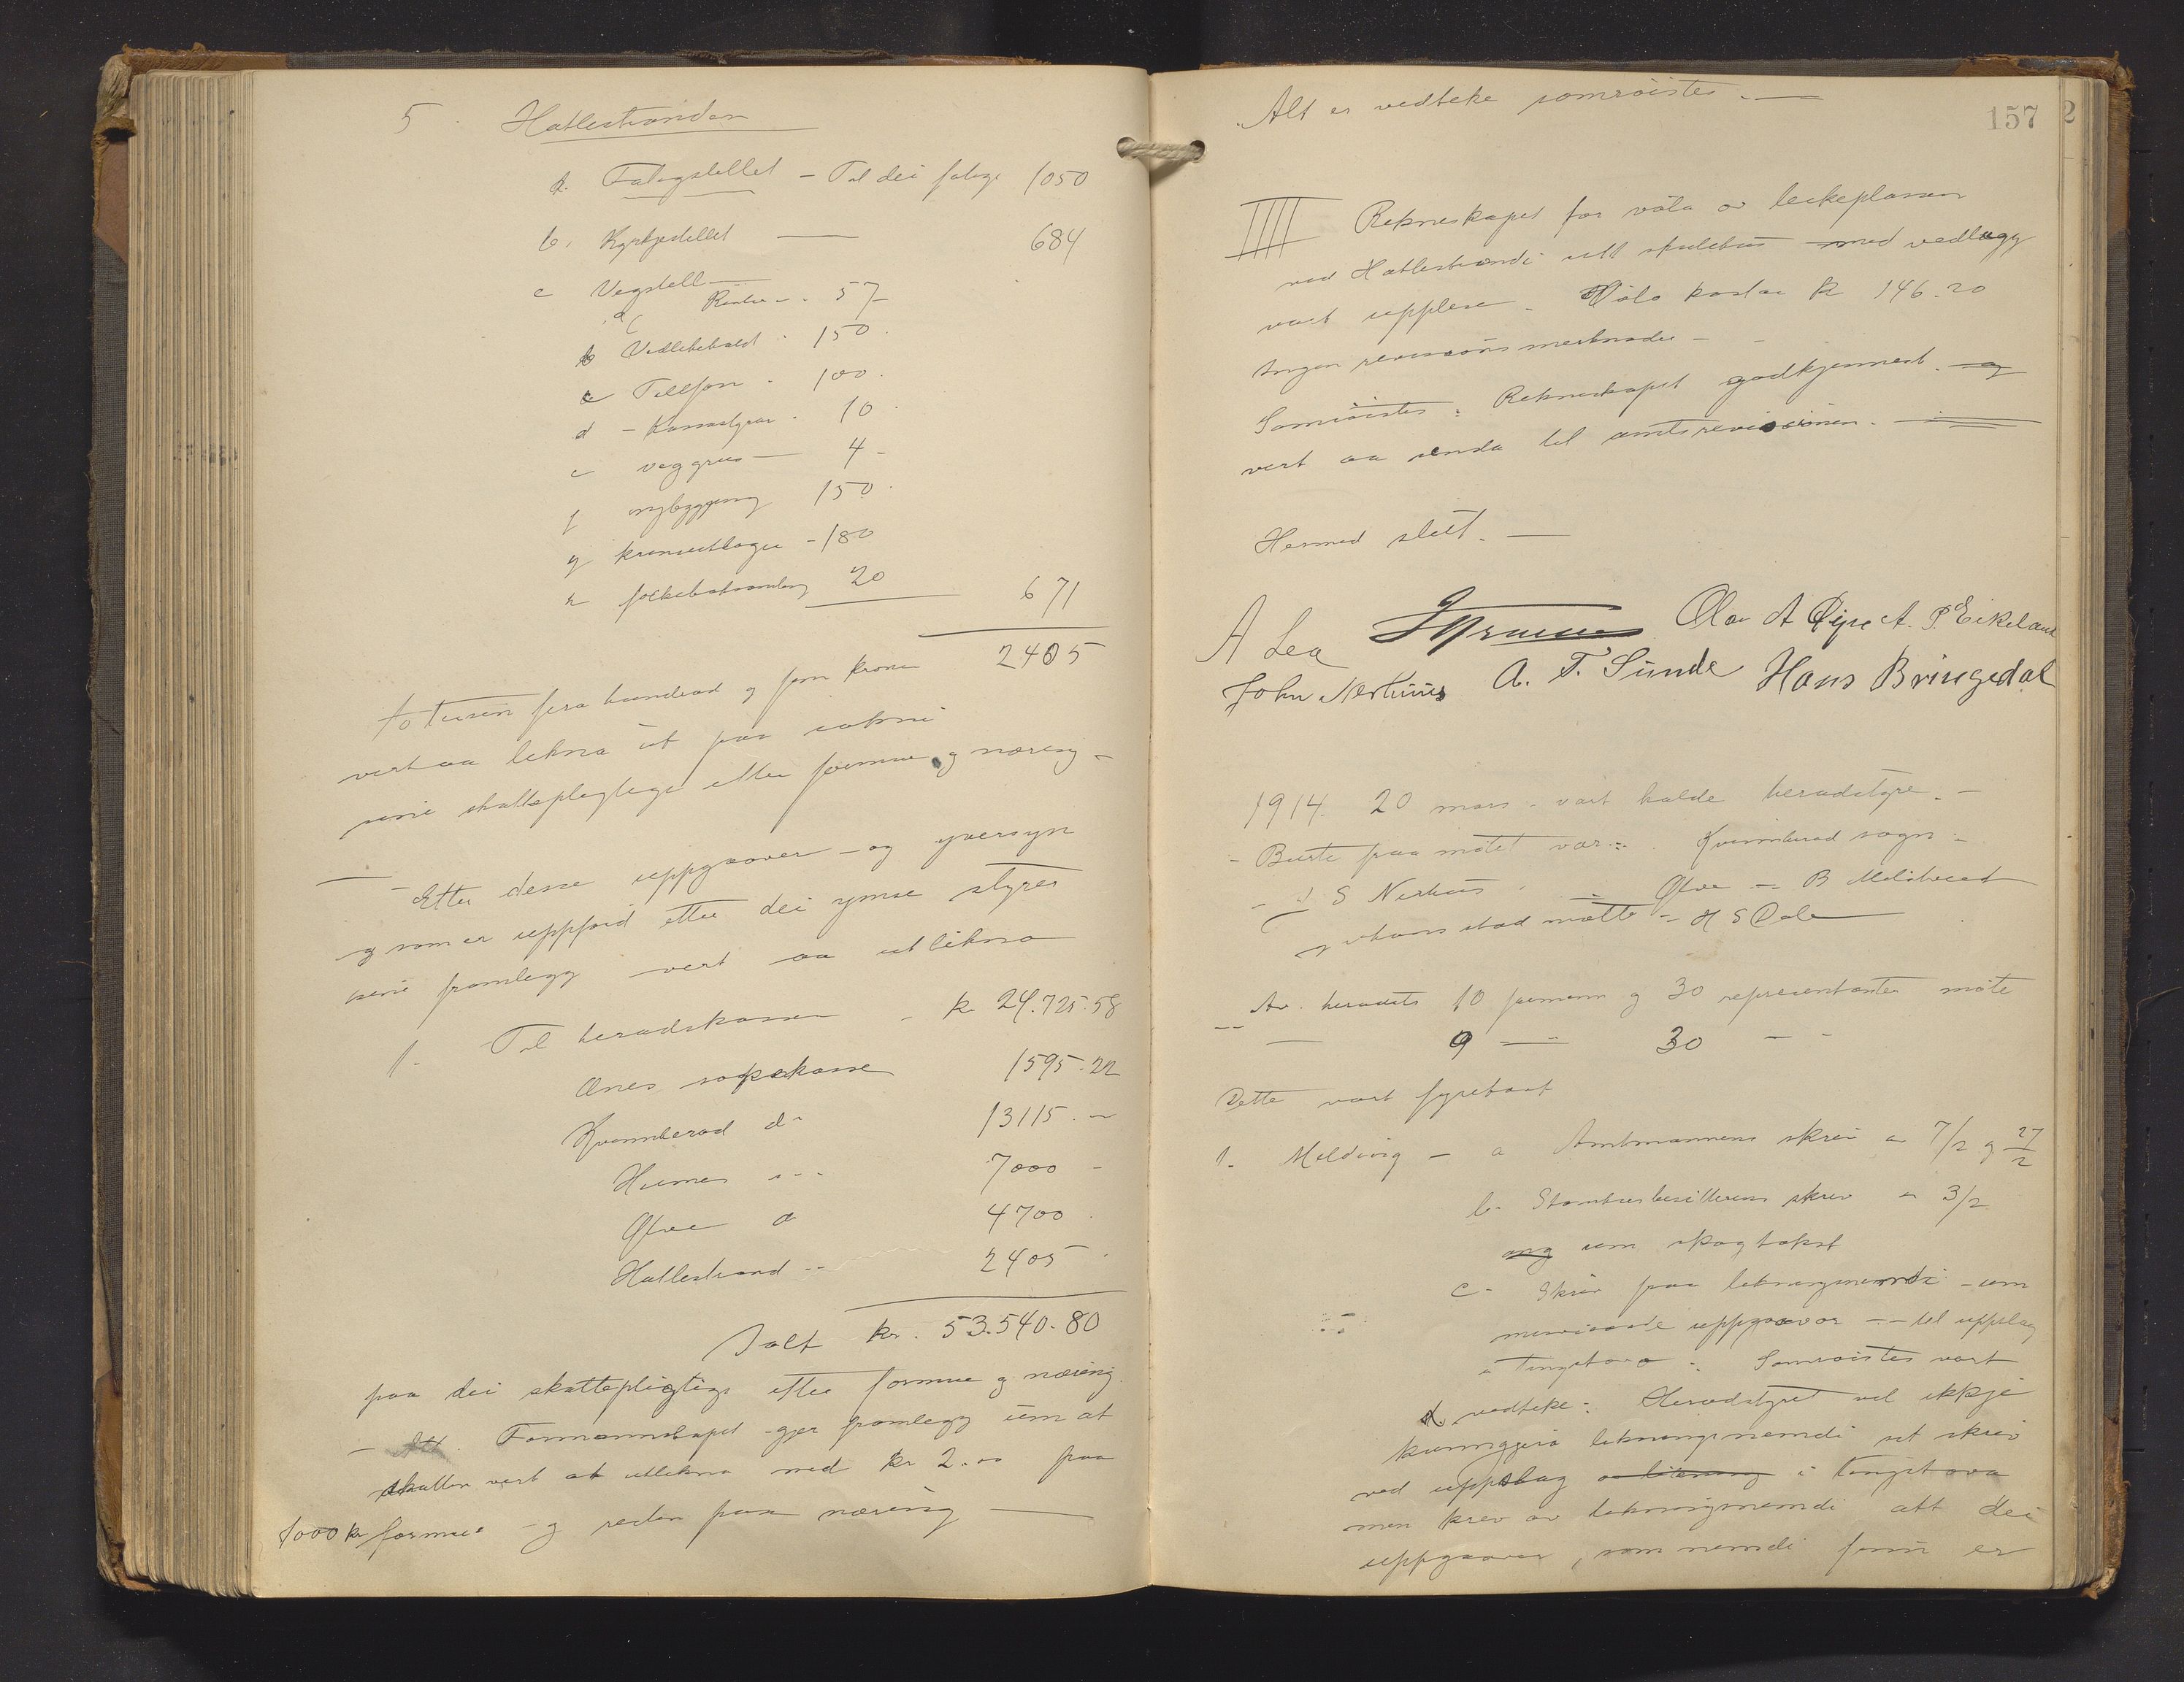 5. Hatlestranden
a. Fatigstellet - Til dei fatige 1050
b. Kyrkjestellet 684
c Vegstell
a Renter - 57 -
b Vedlikehald - 150 -
c Telefon - 100 -
d - Kassastyrar - 10 -
e veggrus - 4 -
f nybyggjing 150 -
g kransutlagur - 180
h folkeboksamling 20 671
2405
to tusen fira hundrad og fem kroner
vert aa likna ut paa sokni
sine skattepligtige etter formue og næring -
- Etter desse uppgaaver - og yversyn
og som er uppførd etter dei ymse styres
sine framlegg vert aa utlikna
1. Til heradskassen - kr 24.725.58
Ænes sognekasse 1595.22
Kvinnherad do 13115. -
Husnes do 7000 -
Ølve do 4700 -
Hatlestrand do 2405 -
Ialt kr. 53.540.80
paa dei skattepligtige efter formue og næring.
- Formannskapet gjer framlegg um at
skatten vert at utlikna med kr 2.00 paa
1000 kr formue og resten paa næring
Alt er vedteke samrøistes. 157 2
IIII Rekneskapet for våla av leikeplassen
ved Hatlestrandi sitt skulehus med vedlegg
vart upplese. Våla kostar kr 146.20
Ingen revisionsmerknader -
Samrøistes: Rekneskapet godkjennest. og
vert aa senda til amtsrevisionen.
Hermed slutt.
A Lea Olav A Øyre A. P. Eikeland
John Nerhuus A. T. Sunde Hans Bringedal
1914. 20 mars - vart halde heradstyre. -
- Burte fraa møtet var: Kvinnherad sogn -
- J S Nerhus - Ølve - B Meltveit
i hans stad møtte - H S Dale
Av heradets 10 formenn og 30 representanter møte
9 30
Dette vart fyretaat
1. Melding - a Amtmannens skriv av 7/2 og 27/2
b. Stamhusbesitterens skriv av 3/2
ang um skogtakst
c. Skriv fraa likningsnemdi - um
uppgaavor - til uppslag
i tingstova. Samrøistes vart
vedteke: Heradstyret vil ikkje
kunngjera likningsnemdi sit skriv
ved uppslag i tingstova
men krev av likningsnemdi att dei
uppgaaver, som nemdi er